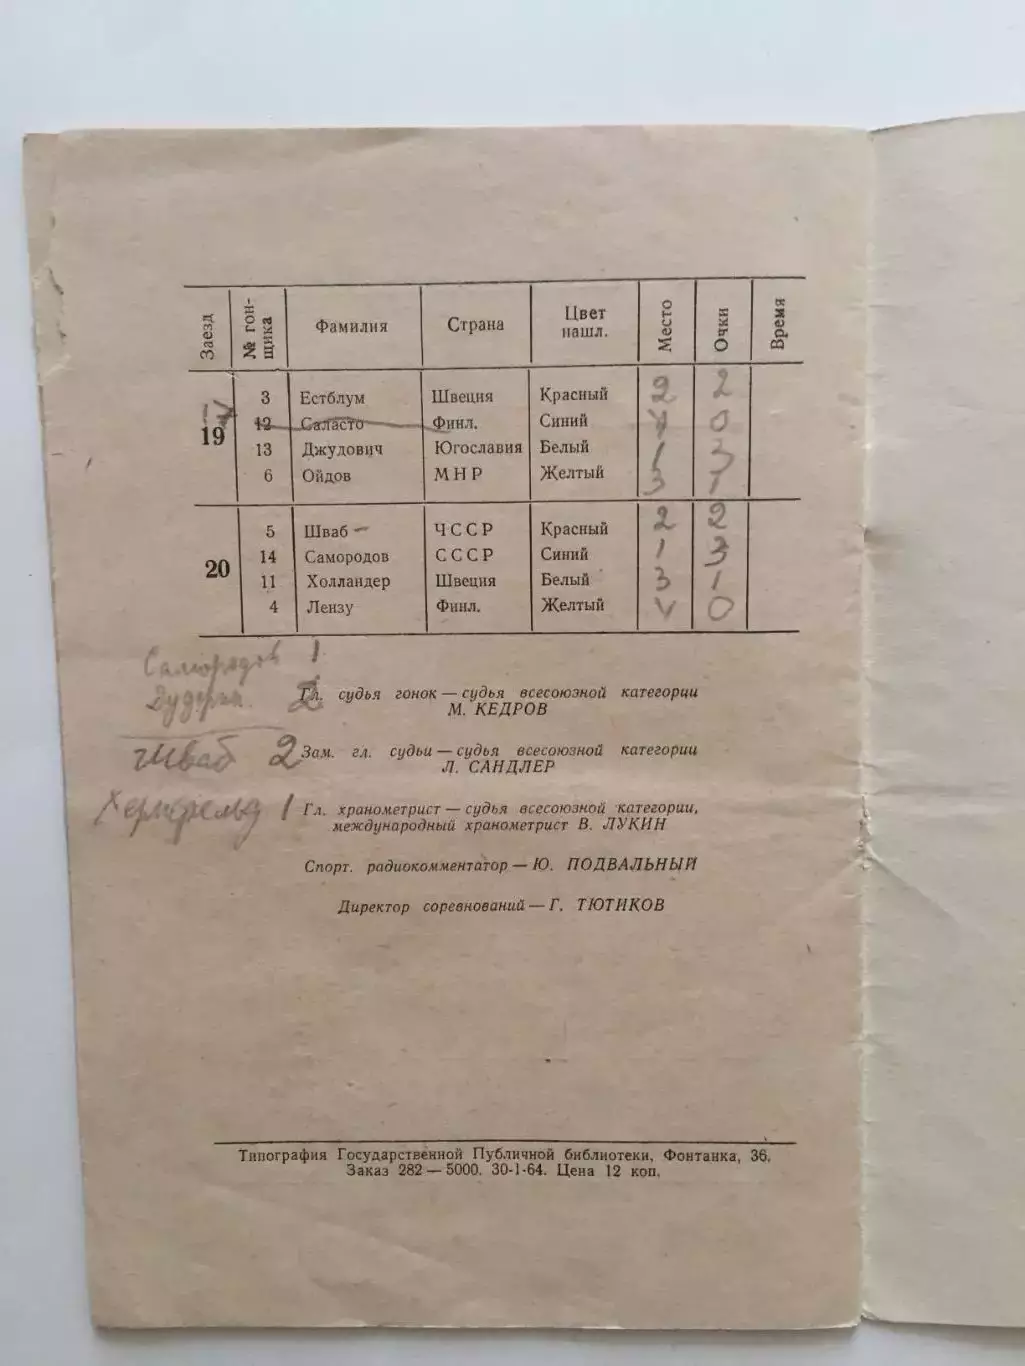 Заезд № гон- щика Фамилия Страна Цвет нашл. Место Очки Время
19
3 Естблум Швеция Красный 2 2
12 Саласто Финл. Синий 4 0
13 Джудович Югославия Белый 1 3
6 Ойдов МНР Желтый 3 1
20
5 Шваб ЧССР Красный 2 2
14 Самородов СССР Синий 1 3
11 Холландер Швеция Белый 3 1
4 Лензу Финл. Желтый 4 0
Самородов 1
Гл. судья гонок — судья всесоюзной категории
М. КЕДРОВ
Шваб 2
Зам. гл. судьи — судья всесоюзной категории
Л. САНДЛЕР
Гл. хранометрист — судья всесоюзной категории,
международный хранометрист В. ЛУКИН
Спорт. радиокомментатор — Ю. ПОДВАЛЬНЫЙ
Директор соревнований — Г. ТЮТИКОВ
Типография Государственной Публичной библиотеки, Фонтанка, 36.
Заказ 282 — 5000. 30-1-64. Цена 12 коп.